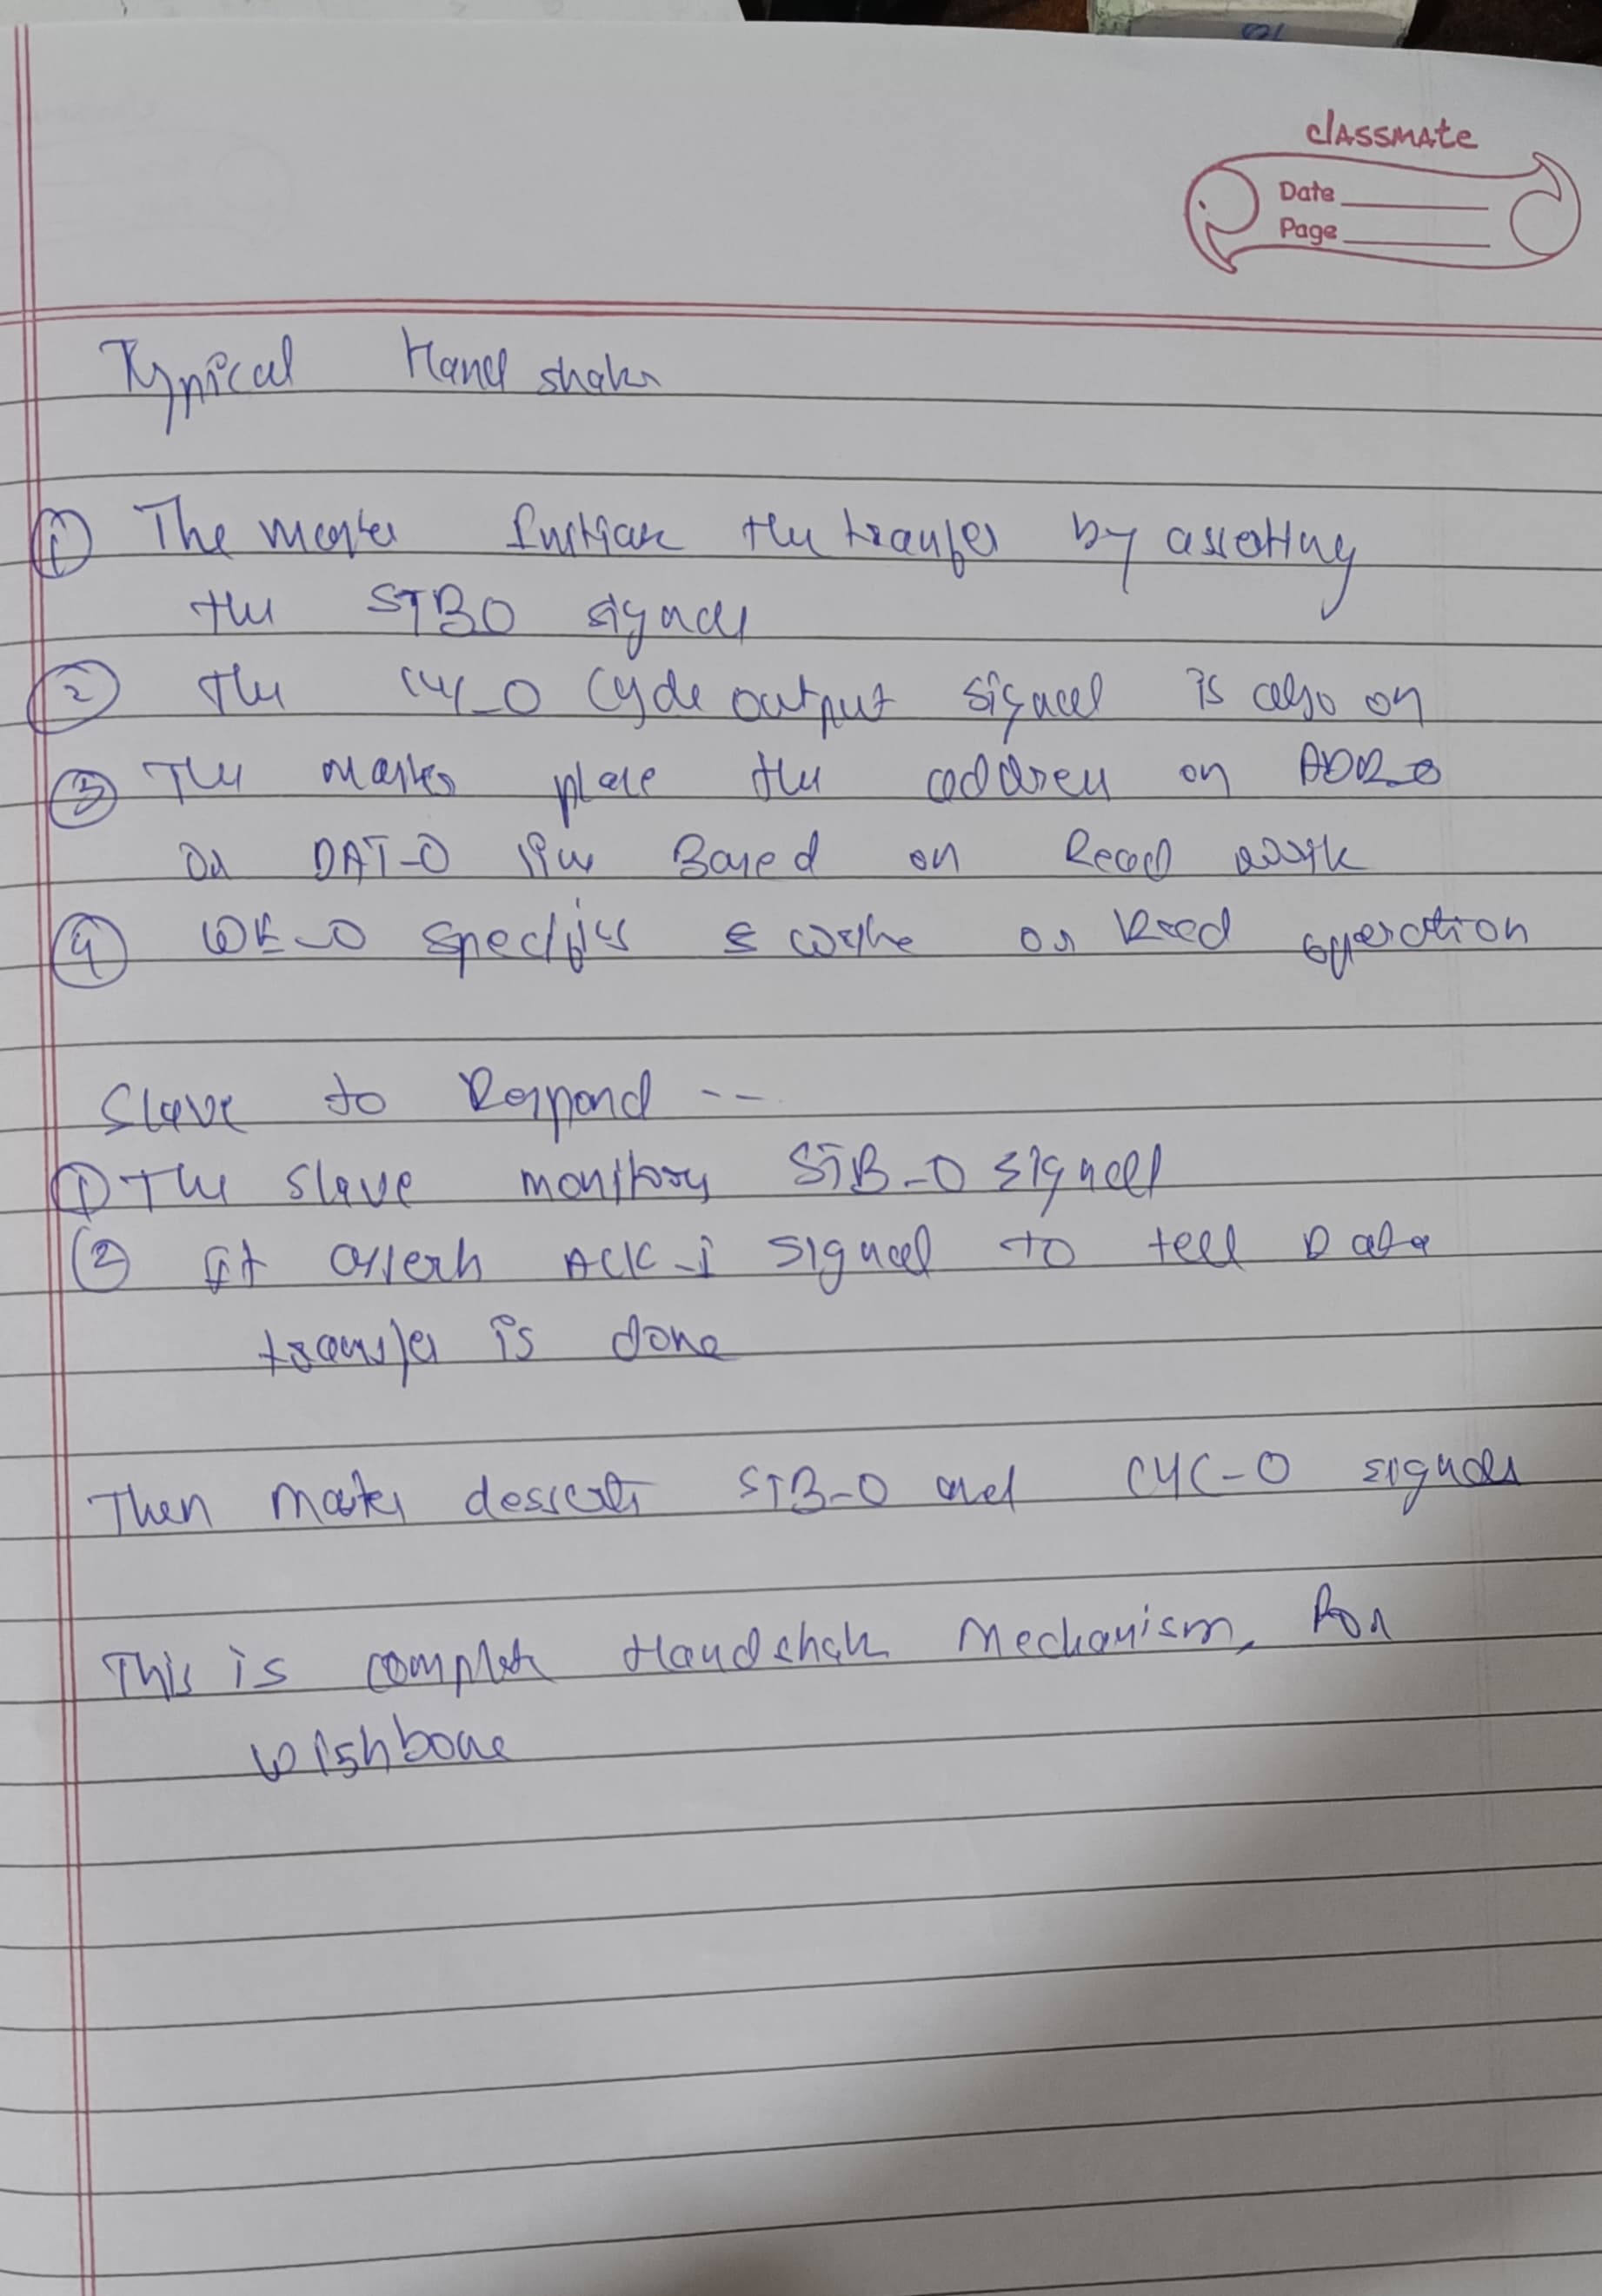 classmate
Date
Page
Typical Hand shake
① The master Initiate the transfer by asserting
the STBO signal
② The CYC_O Cycle output signal is also on
③ The master place the address on ADR_O
or DAT-O line Based on Read write
④ WE_O specifies a write or Read operation
Slave to Respond --
① The slave monitors STB-O signal
② It asserts ACK-I signal to tell Data
transfer is done
Then master desserts STB-O and CYC-O signals
This is complete Handshake Mechanism, For
wishbone